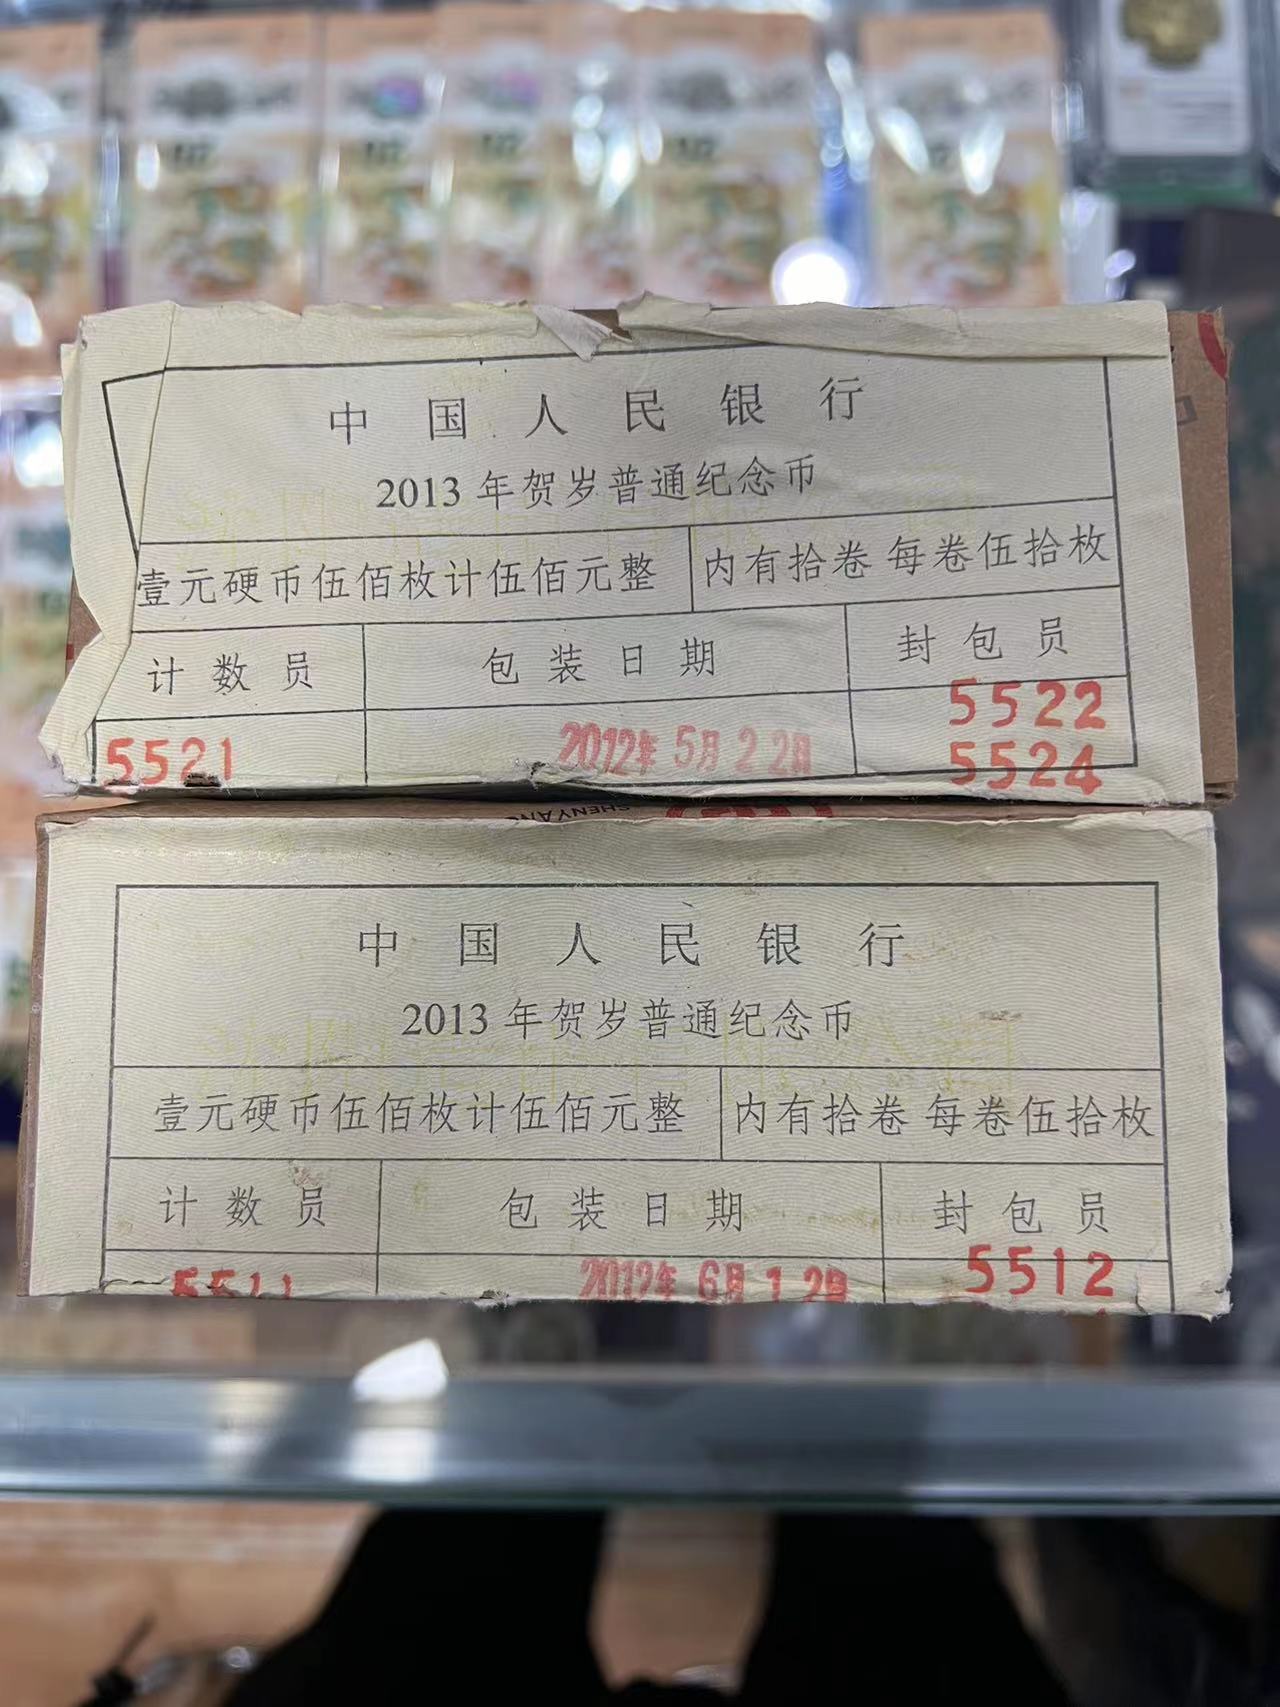 中国人民银行
2013年贺岁普通纪念币
壹元硬币伍佰枚计伍佰元整 内有拾卷 每卷伍拾枚
计数员 包装日期 封包员
5522
5521 2012年5月22日 5524
SHENYANG
中国人民银行
2013年贺岁普通纪念币
壹元硬币伍佰枚计伍佰元整 内有拾卷 每卷伍拾枚
计数员 包装日期 封包员
5511 2012年6月12日 5512